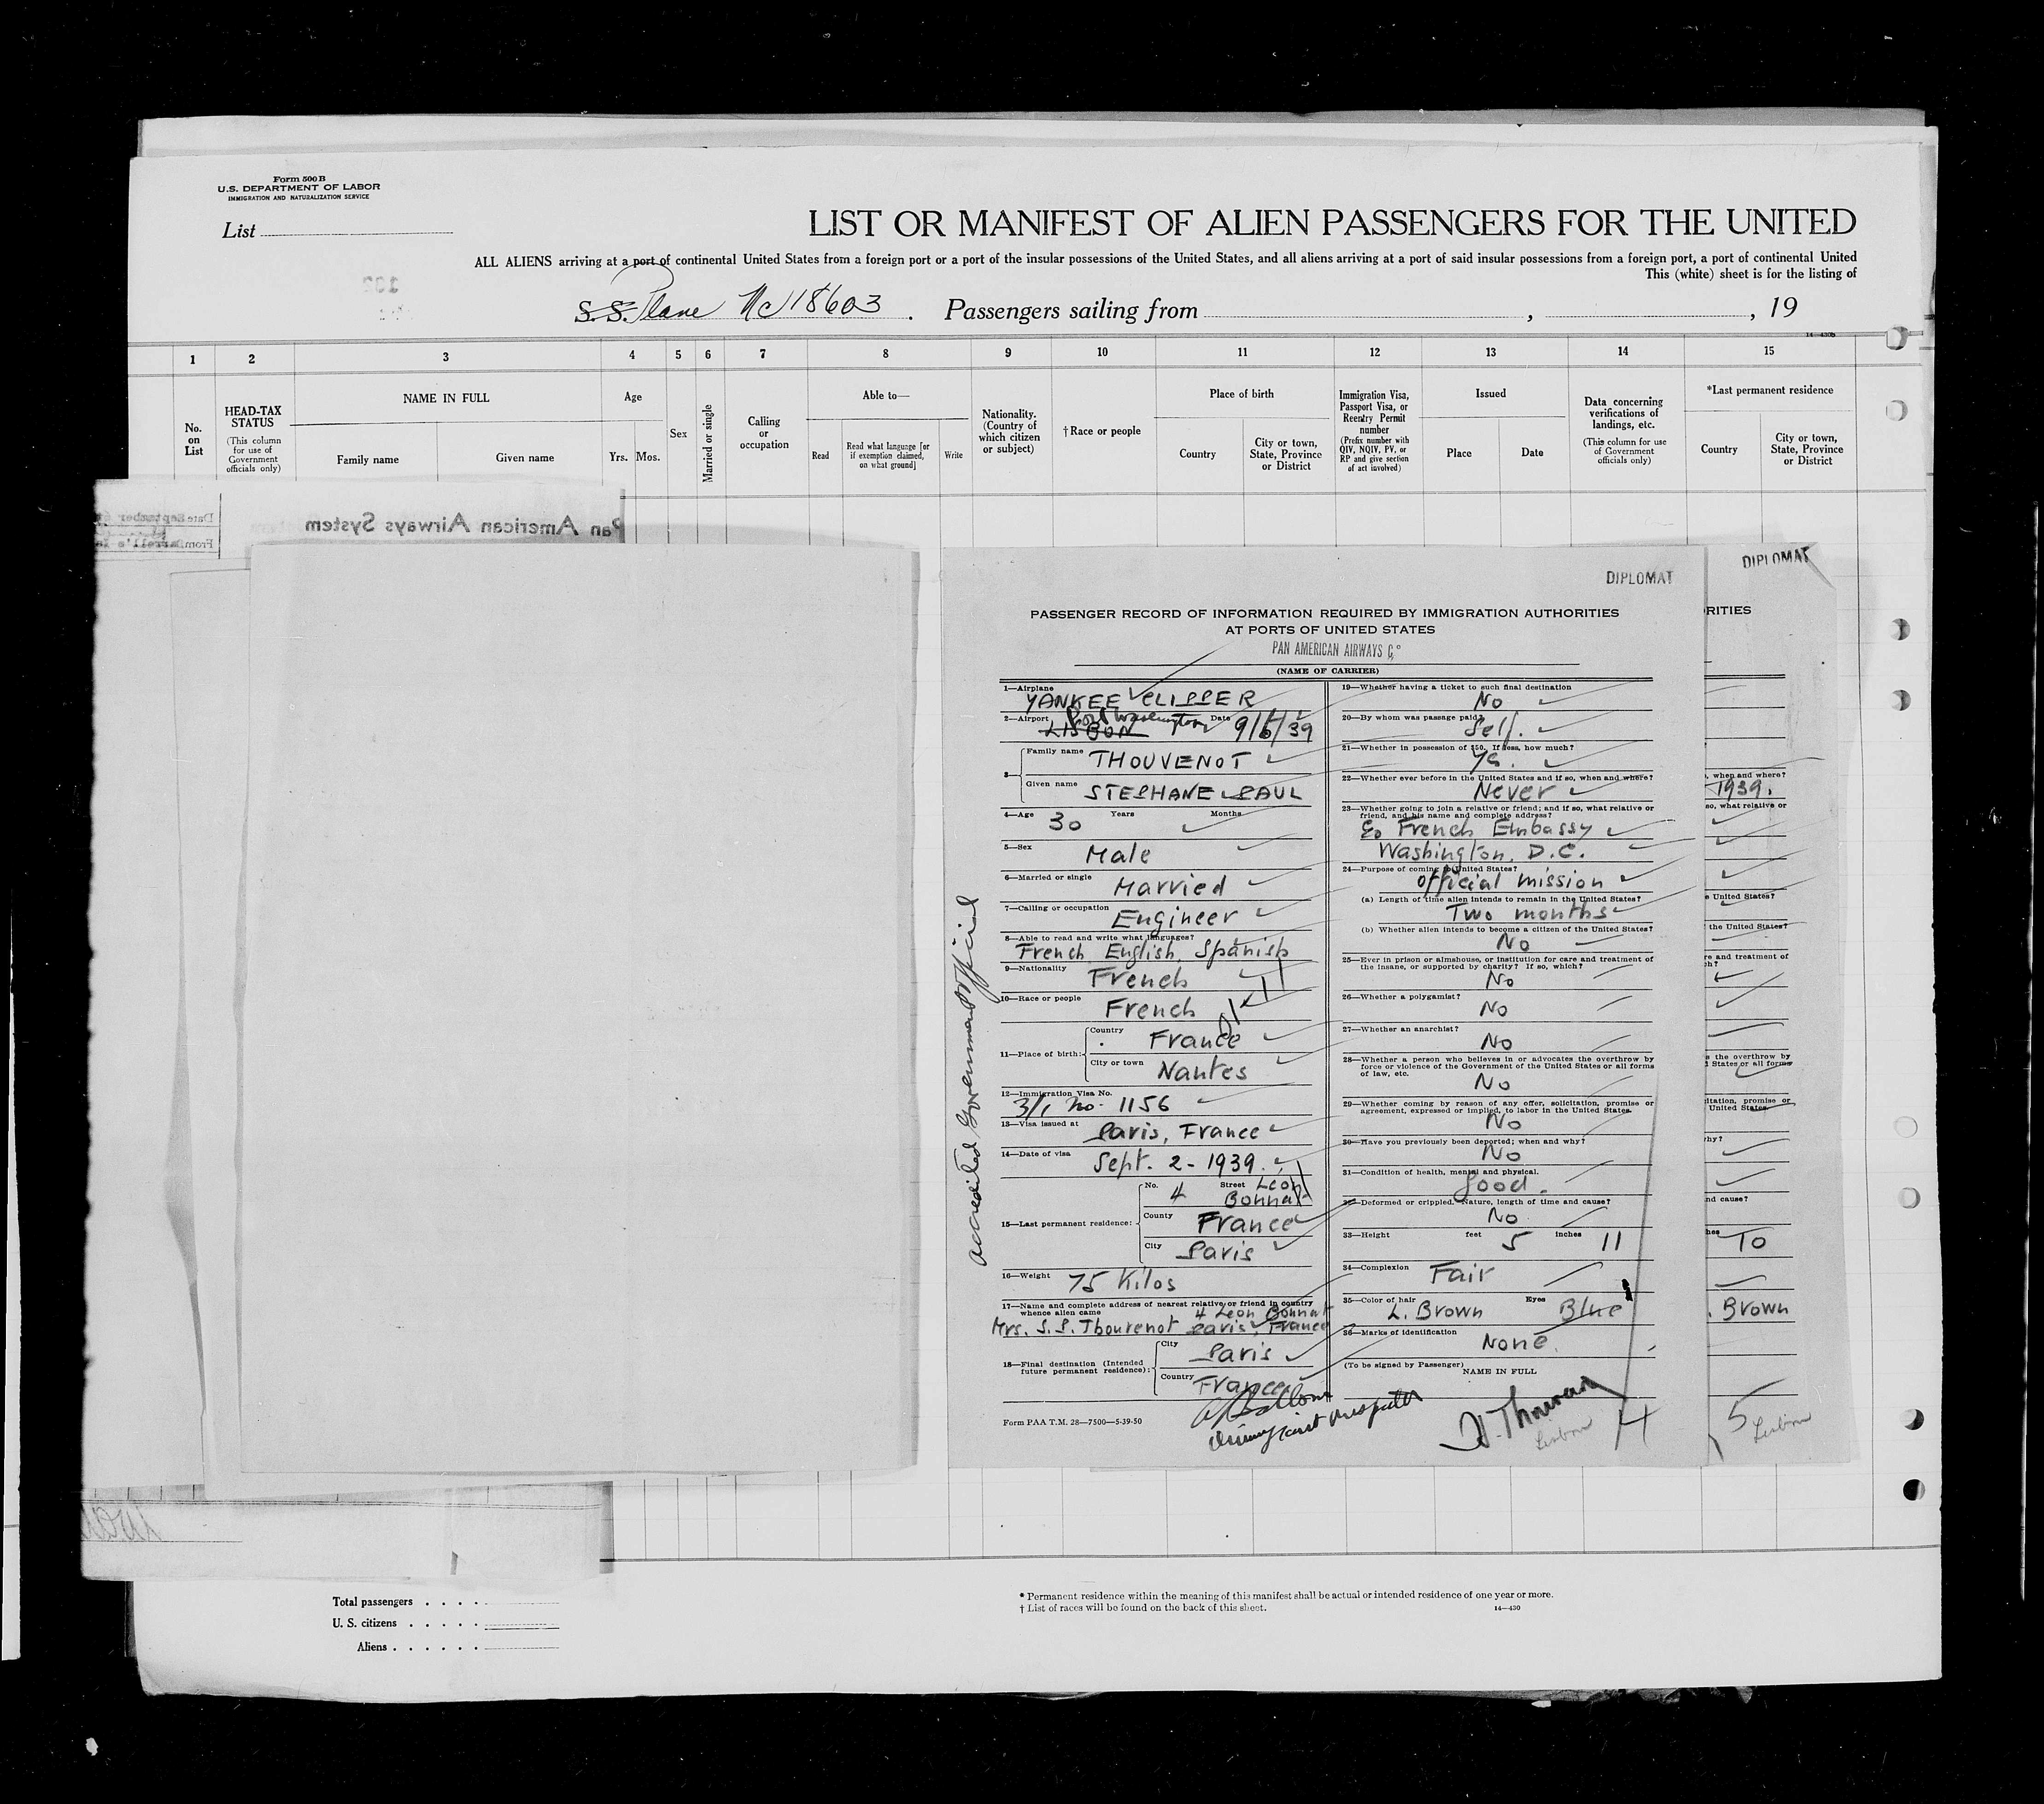 Form 500 B
U.S. DEPARTMENT OF LABOR
IMMIGRATION AND NATURALIZATION SERVICE
List
LIST OR MANIFEST OF ALIEN PASSENGERS FOR THE UNITED
ALL ALIENS arriving at a port of continental United States from a foreign port or a port of the insular possessions of the United States, and all aliens arriving at a port of said insular possessions from a foreign port, a port of continental United
This (white) sheet is for the listing of
S.S. Plane Nc 18603 . Passengers sailing from , , 19
1 2 3 4 5 6 7 8 9 10 11 12 13 14 15
No. on List
HEAD-TAX STATUS
(This column for use of Government officials only)
NAME IN FULL
Family name
Given name
Age
Yrs.
Mos.
Sex
Married or single
Calling or occupation
Able to—
Read
Read what language [or if exemption claimed, on what ground]
Write
Nationality. (Country of which citizen or subject)
†Race or people
Place of birth
Country
City or town, State, Province or District
Immigration Visa, Passport Visa, or Reentry Permit number
(Prefix number with QIV, NQIV, PV, or RP and give section of act involved)
Issued
Place
Date
Data concerning verifications of landings, etc.
(This column for use of Government officials only)
*Last permanent residence
Country
City or town, State, Province or District
Pan American Airways System
Date September
From Darrell's
DIPLOMAT
PASSENGER RECORD OF INFORMATION REQUIRED BY IMMIGRATION AUTHORITIES
AT PORTS OF UNITED STATES
PAN AMERICAN AIRWAYS Co
(NAME OF CARRIER)
1—Airplane YANKEE CLIPPER
2—Airport LISBON Port Washington Date 9/6/39
3— Family name THOUVENOT
Given name STEPHANE PAUL
4—Age 30 Years Months
5—Sex Male
6—Married or single Married
7—Calling or occupation Engineer
8—Able to read and write what languages?
French English, Spanish
9—Nationality French
10—Race or people French
11—Place of birth: Country France
City or town Nantes
12—Immigration Visa No.
3/1 No. 1156
13—Visa issued at Paris, France
14—Date of visa Sept. 2 - 1939.
15—Last permanent residence: No. 4 Street Leon Bonnat
County France
City Paris
16—Weight 75 Kilos
17—Name and complete address of nearest relative or friend in country
whence alien came 4 Leon Bonnat
Mrs. S. P. Thouvenot Paris, France
18—Final destination (Intended future permanent residence): City Paris
Country France
Form PAA T.M. 28—7500—5-39-50
Accredited Government Official
19—Whether having a ticket to such final destination
No
20—By whom was passage paid?
Self.
21—Whether in possession of $50. If less, how much?
Yes.
22—Whether ever before in the United States and if so, when and where?
Never
23—Whether going to join a relative or friend; and if so, what relative or
friend, and his name and complete address?
c/o French Embassy
Washington, D.C.
24—Purpose of coming to United States?
official mission
(a) Length of time alien intends to remain in the United States?
Two months
(b) Whether alien intends to become a citizen of the United States?
No
25—Ever in prison or almshouse, or institution for care and treatment of
the insane, or supported by charity? If so, which?
No
26—Whether a polygamist?
No
27—Whether an anarchist?
No
28—Whether a person who believes in or advocates the overthrow by
force or violence of the Government of the United States or all forms
of law, etc.
No
29—Whether coming by reason of any offer, solicitation, promise or
agreement, expressed or implied, to labor in the United States.
No
30—Have you previously been deported; when and why?
No
31—Condition of health, mental and physical.
Good.
32—Deformed or crippled. Nature, length of time and cause?
No
33—Height feet 5 inches 11
34—Complexion Fair
35—Color of hair L. Brown Eyes Blue
36—Marks of identification None.
(To be signed by Passenger)
NAME IN FULL
Immigrant Inspector
Lisbon 4
DIPLOMAT
RITIES
, when and where?
1939.
so, what relative or
e United States?
the United States?
re and treatment of
h?
s the overthrow by
d States or all forms
itation, promise or
United States.
why?
nd cause?
hes 10
. Brown
5
Lisbon
Total passengers . . . .
U. S. citizens . . . . .
Aliens . . . . . .
* Permanent residence within the meaning of this manifest shall be actual or intended residence of one year or more.
† List of races will be found on the back of this sheet.
14—430